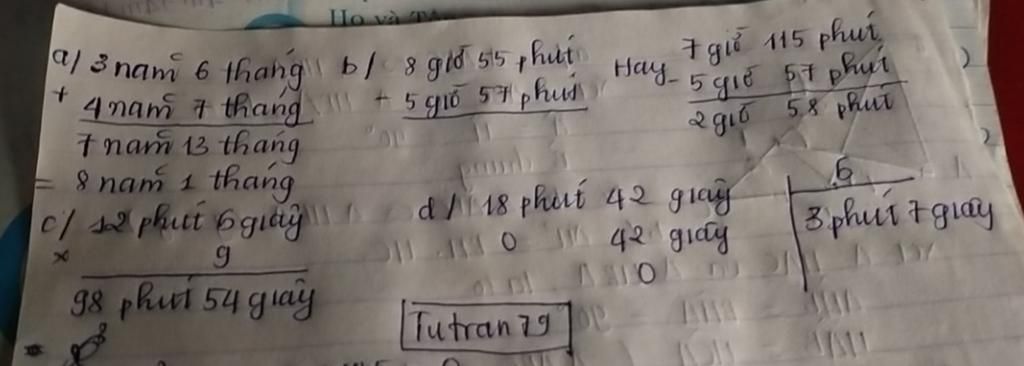 Họ và Tên
a/ 3 năm 6 tháng
+
4 năm 7 tháng
7 năm 13 tháng
= 8 năm 1 tháng
b/ 8 giờ 55 phút
+ 5 giờ 57 phút
Hay 7 giờ 115 phút
- 5 giờ 57 phút
2 giờ 58 phút
c/ 12 phút 6 giây
x 9
98 phút 54 giây
d/ 18 phút 42 giây
6
0 42 giây
3 phút 7 giây
0
Tutran79